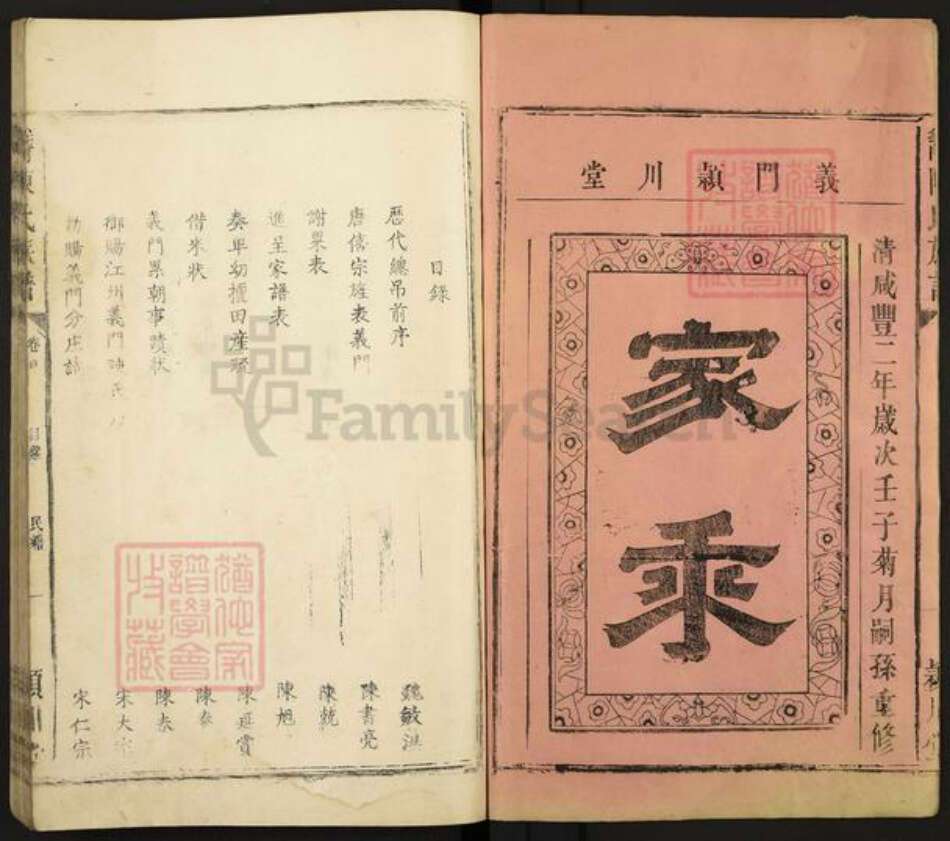 義門潁川堂
清咸豐二年歲次壬子菊月嗣孫重修
家乘
目錄
歷代總吊前序 魏敏洪
唐僖宗旌表義門 陳書亮
謝果表 陳銃
進呈家譜表 陳旭
奏卑幼擅田産 陳延賞
借米狀 陳泰
義門累朝事蹟狀 陳泰
御賜江州義門陳氏 宋太宗
賜義門分庄 宋仁宗
卷
目錄
一
FamilySearch
猶他家譜學會收藏